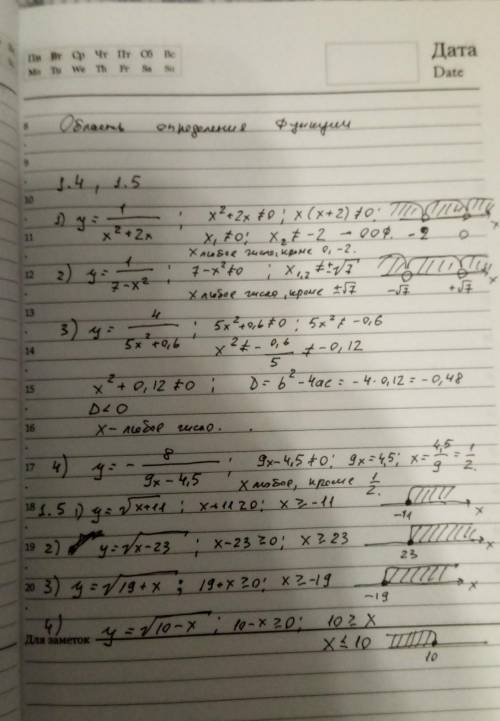 Пн Вт Ср Чт Пт Сб Вс
Mo Tu We Th Fr Sa Su
Дата
Date
8 Область определения функции
9
1.4, 1.5
10
1) y = 1/(x²+2x) ; x²+2x≠0; x(x+2)≠0;
11 x₁≠0; x₂≠-2 – ООФ. -2 0 x
x любое число, кроме 0, -2.
12 2) y = 1/(7-x²) ; 7-x²≠0 ; x₁,₂≠±√7
x любое число, кроме ±√7 -√7 +√7 x
13
3) y = 4/(5x²+0,6) ; 5x²+0,6≠0; 5x²≠-0,6
14 x²≠-0,6/5 ≠-0,12
15 x²+0,12≠0 ; D=b²-4ac=-4·0,12=-0,48
D<0
16 x-любое число.
17 4) y = - 8/(9x-4,5) ; 9x-4,5≠0; 9x=4,5; x=4,5/9=1/2.
x любое, кроме 1/2.
18 1.5 1) y=√(x+11) ; x+11≥0; x≥-11 -11 x
19 2) y=√(x-23) ; x-23≥0; x≥23 23 x
20 3) y=√(19+x) ; 19+x≥0; x≥-19 -19 x
4) y=√(10-x) ; 10-x≥0; 10≥x
Для заметок x≤10 10